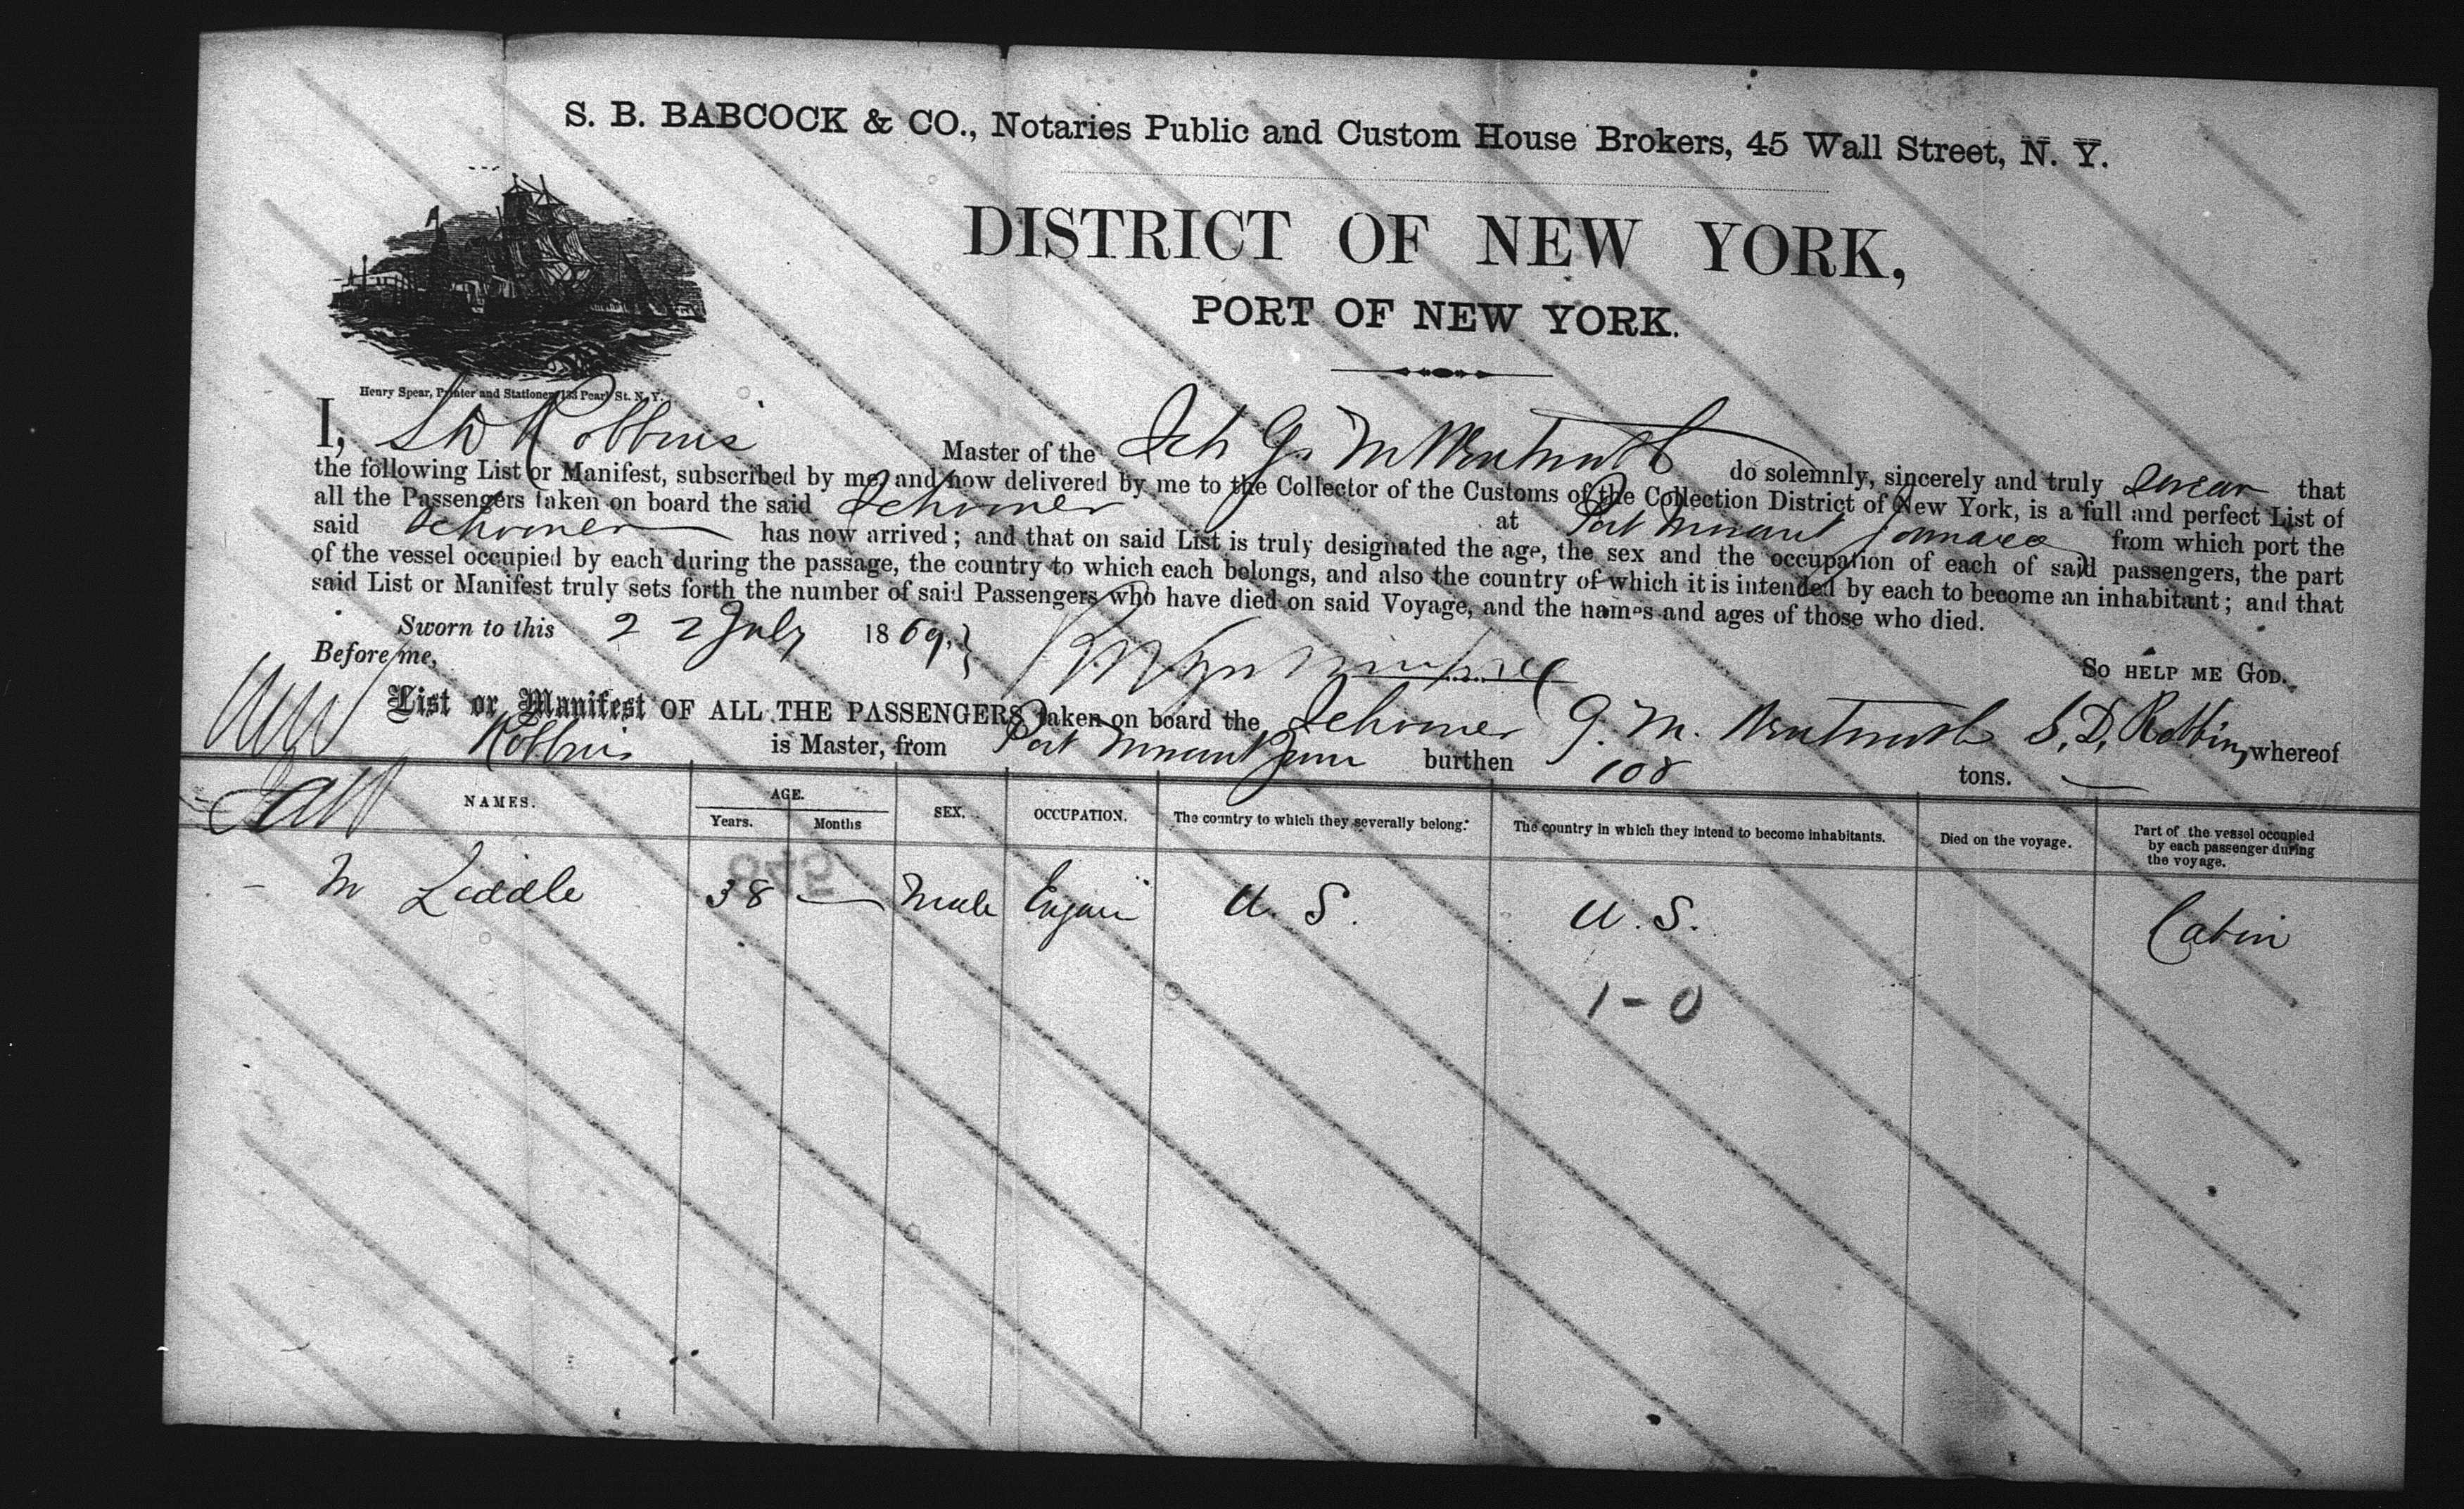 S. B. BABCOCK & CO., Notaries Public and Custom House Brokers, 45 Wall Street, N. Y.
DISTRICT OF NEW YORK,
PORT OF NEW YORK.
Henry Spear, Printer and Stationer, 133 Pearl St. N. Y.
I, S D Robbins Master of the Sch G. M Wentworth do solemnly, sincerely and truly swear that
the following List or Manifest, subscribed by me, and now delivered by me to the Collector of the Customs of the Collection District of New York, is a full and perfect List of
all the Passengers taken on board the said Schooner at Port Morant Jamaica from which port the
said Schooner has now arrived; and that on said List is truly designated the age, the sex and the occupation of each of said passengers, the part
of the vessel occupied by each during the passage, the country to which each belongs, and also the country of which it is intended by each to become an inhabitant; and that
said List or Manifest truly sets forth the number of said Passengers who have died on said Voyage, and the names and ages of those who died.
Sworn to this 22 July 1869.
So HELP ME GOD.
Before me,
List or Manifest OF ALL THE PASSENGERS taken on board the Schooner G. M. Wentworth S. D. Robbins whereof
Robbins is Master, from Port Morant Jam burthen 108 tons.
NAMES. AGE. SEX. OCCUPATION. The country to which they severally belong. The country in which they intend to become inhabitants. Died on the voyage. Part of the vessel occupied by each passenger during the voyage.
Years. Months
M Liddle 38 — Male U. S. U. S. Cabin
1-0